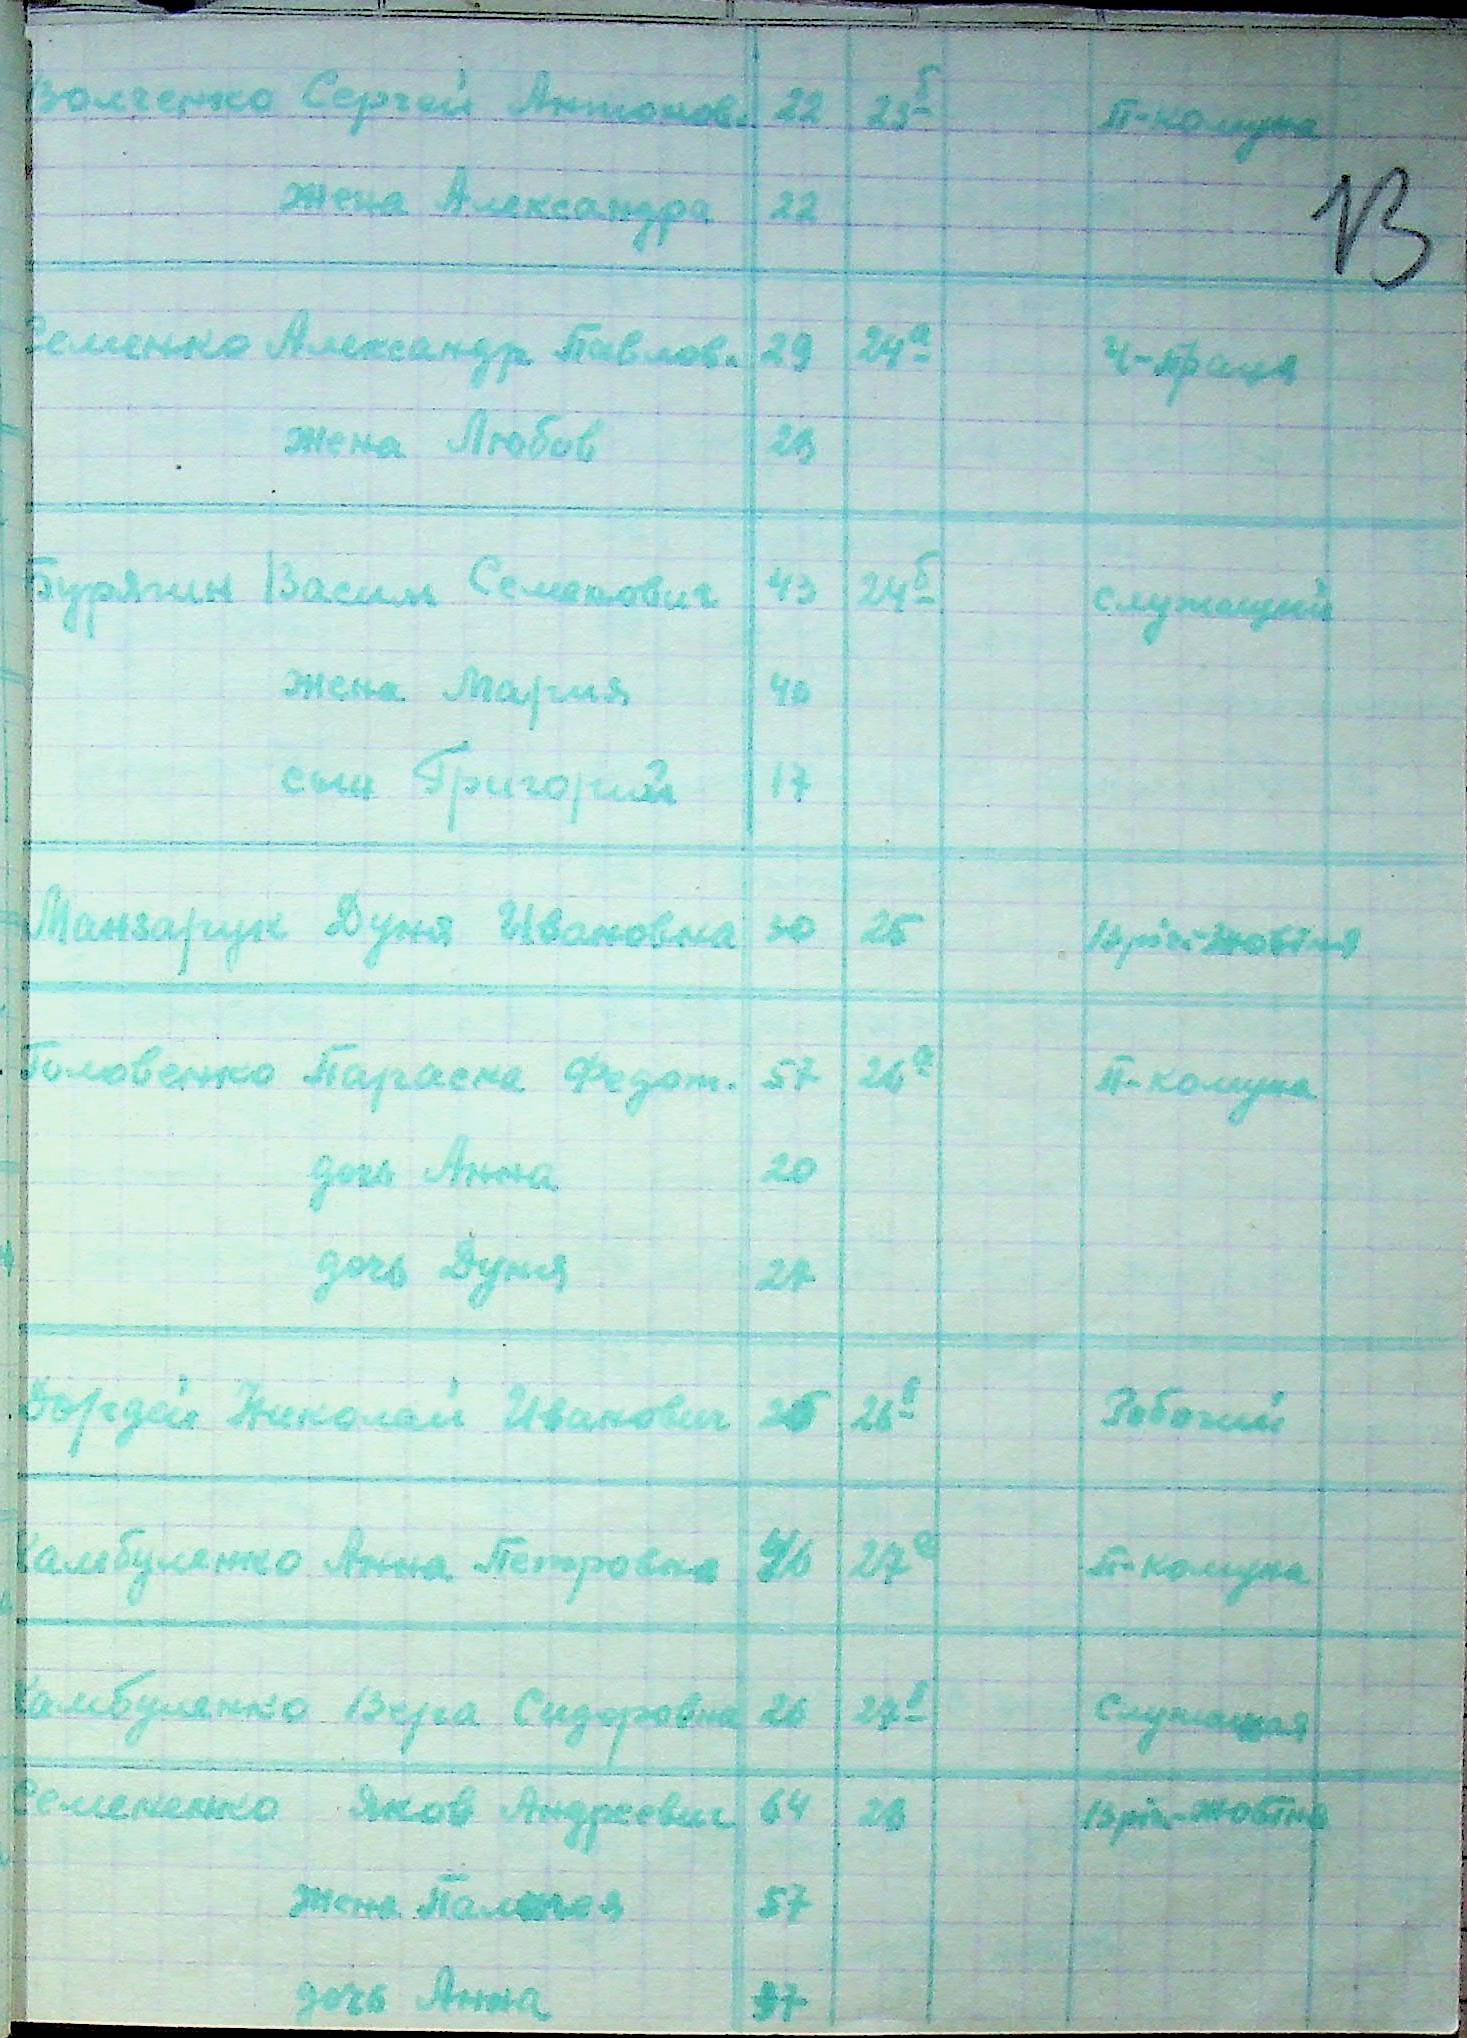 Волченко Сергей Антонов. 22 23б П-комуна
жена Александра 22
13
Семенко Александр Павлов. 29 24а Ч-праця
жена Любов 28
Бурячин Васил Семенович 43 24б служащий
жена Мария 40
сын Григорий 17
Манзарук Дуня Ивановна 30 25 Жовтня
Головенко Параска Федот. 57 26а П-комуна
дочь Анна 20
дочь Дуня 27
Николай Иванович 26б Робочий
Камбуленко Анна Петровна 27а П-комуна
Камбуленко Вера Сидоровна 26 27б Служащая
Семененко Яков Андреевич 64 28 Жовтня
жена 57
дочь Анна